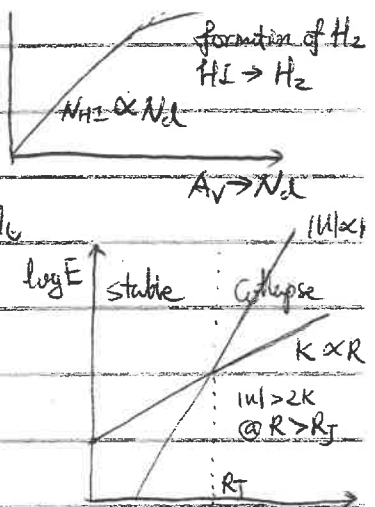 formtin of H₂
HI → H₂
N_HI ∝ N_d
A_V → N_d
|U| ∝
log E
stable
Collapse
K ∝ R
|U| > 2K
@ R > R_J
R_J